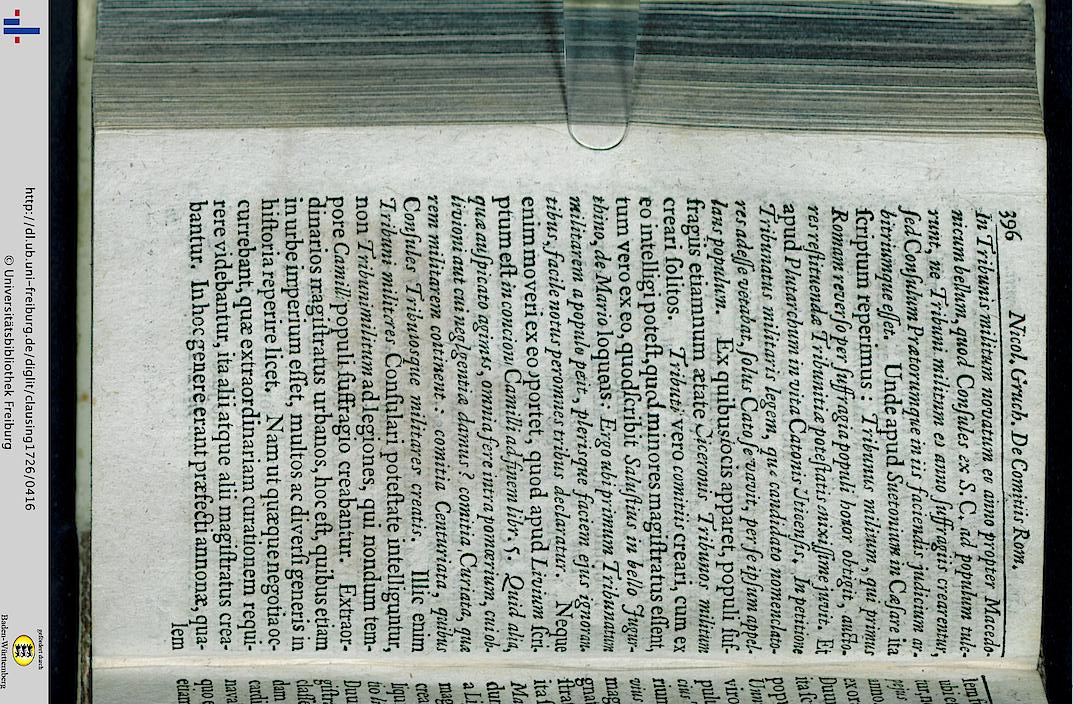 396 Nicol. Gruch. De Comitiis Rom,
In Tribunis militum novatum eo anno propter Macedo-
nicum bellum, quod Consules ex S. C. ad populum tule-
runt, ne Tribuni militum eo anno suffragiis crearentur,
sed Consulum Prætorumque in iis faciendis judicium ar-
bitriumque esset. Unde apud Suetonium in Cæsare ita
scriptum reperimus: Tribunus militum, qui primus
Romam reverso per suffragia populi honor obtigit, aucto-
res restituendæ Tribunitiæ potestatis enixissime juvit. Et
apud Plutarchum in vita Catonis Uticensis. In petitione
Tribunatus militaris legem, quæ candidato nomenclato-
res adesse vetabat, solus Cato servavit, per se ipsum appel-
lans populum. Ex quibus locis apparet, populi suf-
fragiis etiamnum ætate Ciceronis Tribunos militum
creari solitos. Tributi vero comitiis creari, cum ex
eo intelligi potest, quod minores magistratus essent,
tum vero ex eo, quod scribit Salustius in bello Jugur-
thino, de Mario loquens: Ergo ubi primum Tribunatum
militarem a populo petit, plerisque faciem ejus ignoran-
tibus, facile notus per omnes tribus declaratur. Neque
enim moveri ex eo oportet, quod apud Livium scri-
ptum est in concione Camilli ad finem libr. 5. Quid alia,
quæ auspicato agimus, omnia fere intra pomœrium, cui ob-
livioni aut cui neglgentiæ damus? comitia Curiata, quæ
rem militarem continent: comitia Centuriata, quibus
Consules Tribunosque militares creatis, Illic enim
Tribuni militares Consulari potestate intelliguntur,
non Tribuni militum ad legiones, qui nondum tem-
pore Camilli populi suffragio creabantur. Extraor-
dinarios magistratus urbanos, hoc est, quibus etiam
in urbe imperium esset, multos ac diversi generis in
historia reperire licet. Nam ut quæque negotia oc-
currebant, quæ extraordinariam curationem requi-
rere videbantur, ita alii atque alii magistratus crea-
bantur. In hoc genere erant præfecti annonæ, qua-
lem
http://dl.ub.uni-freiburg.de/diglit/clausing1726/0416
© Universitätsbibliothek Freiburg
gefördert durch
Baden-Württemberg